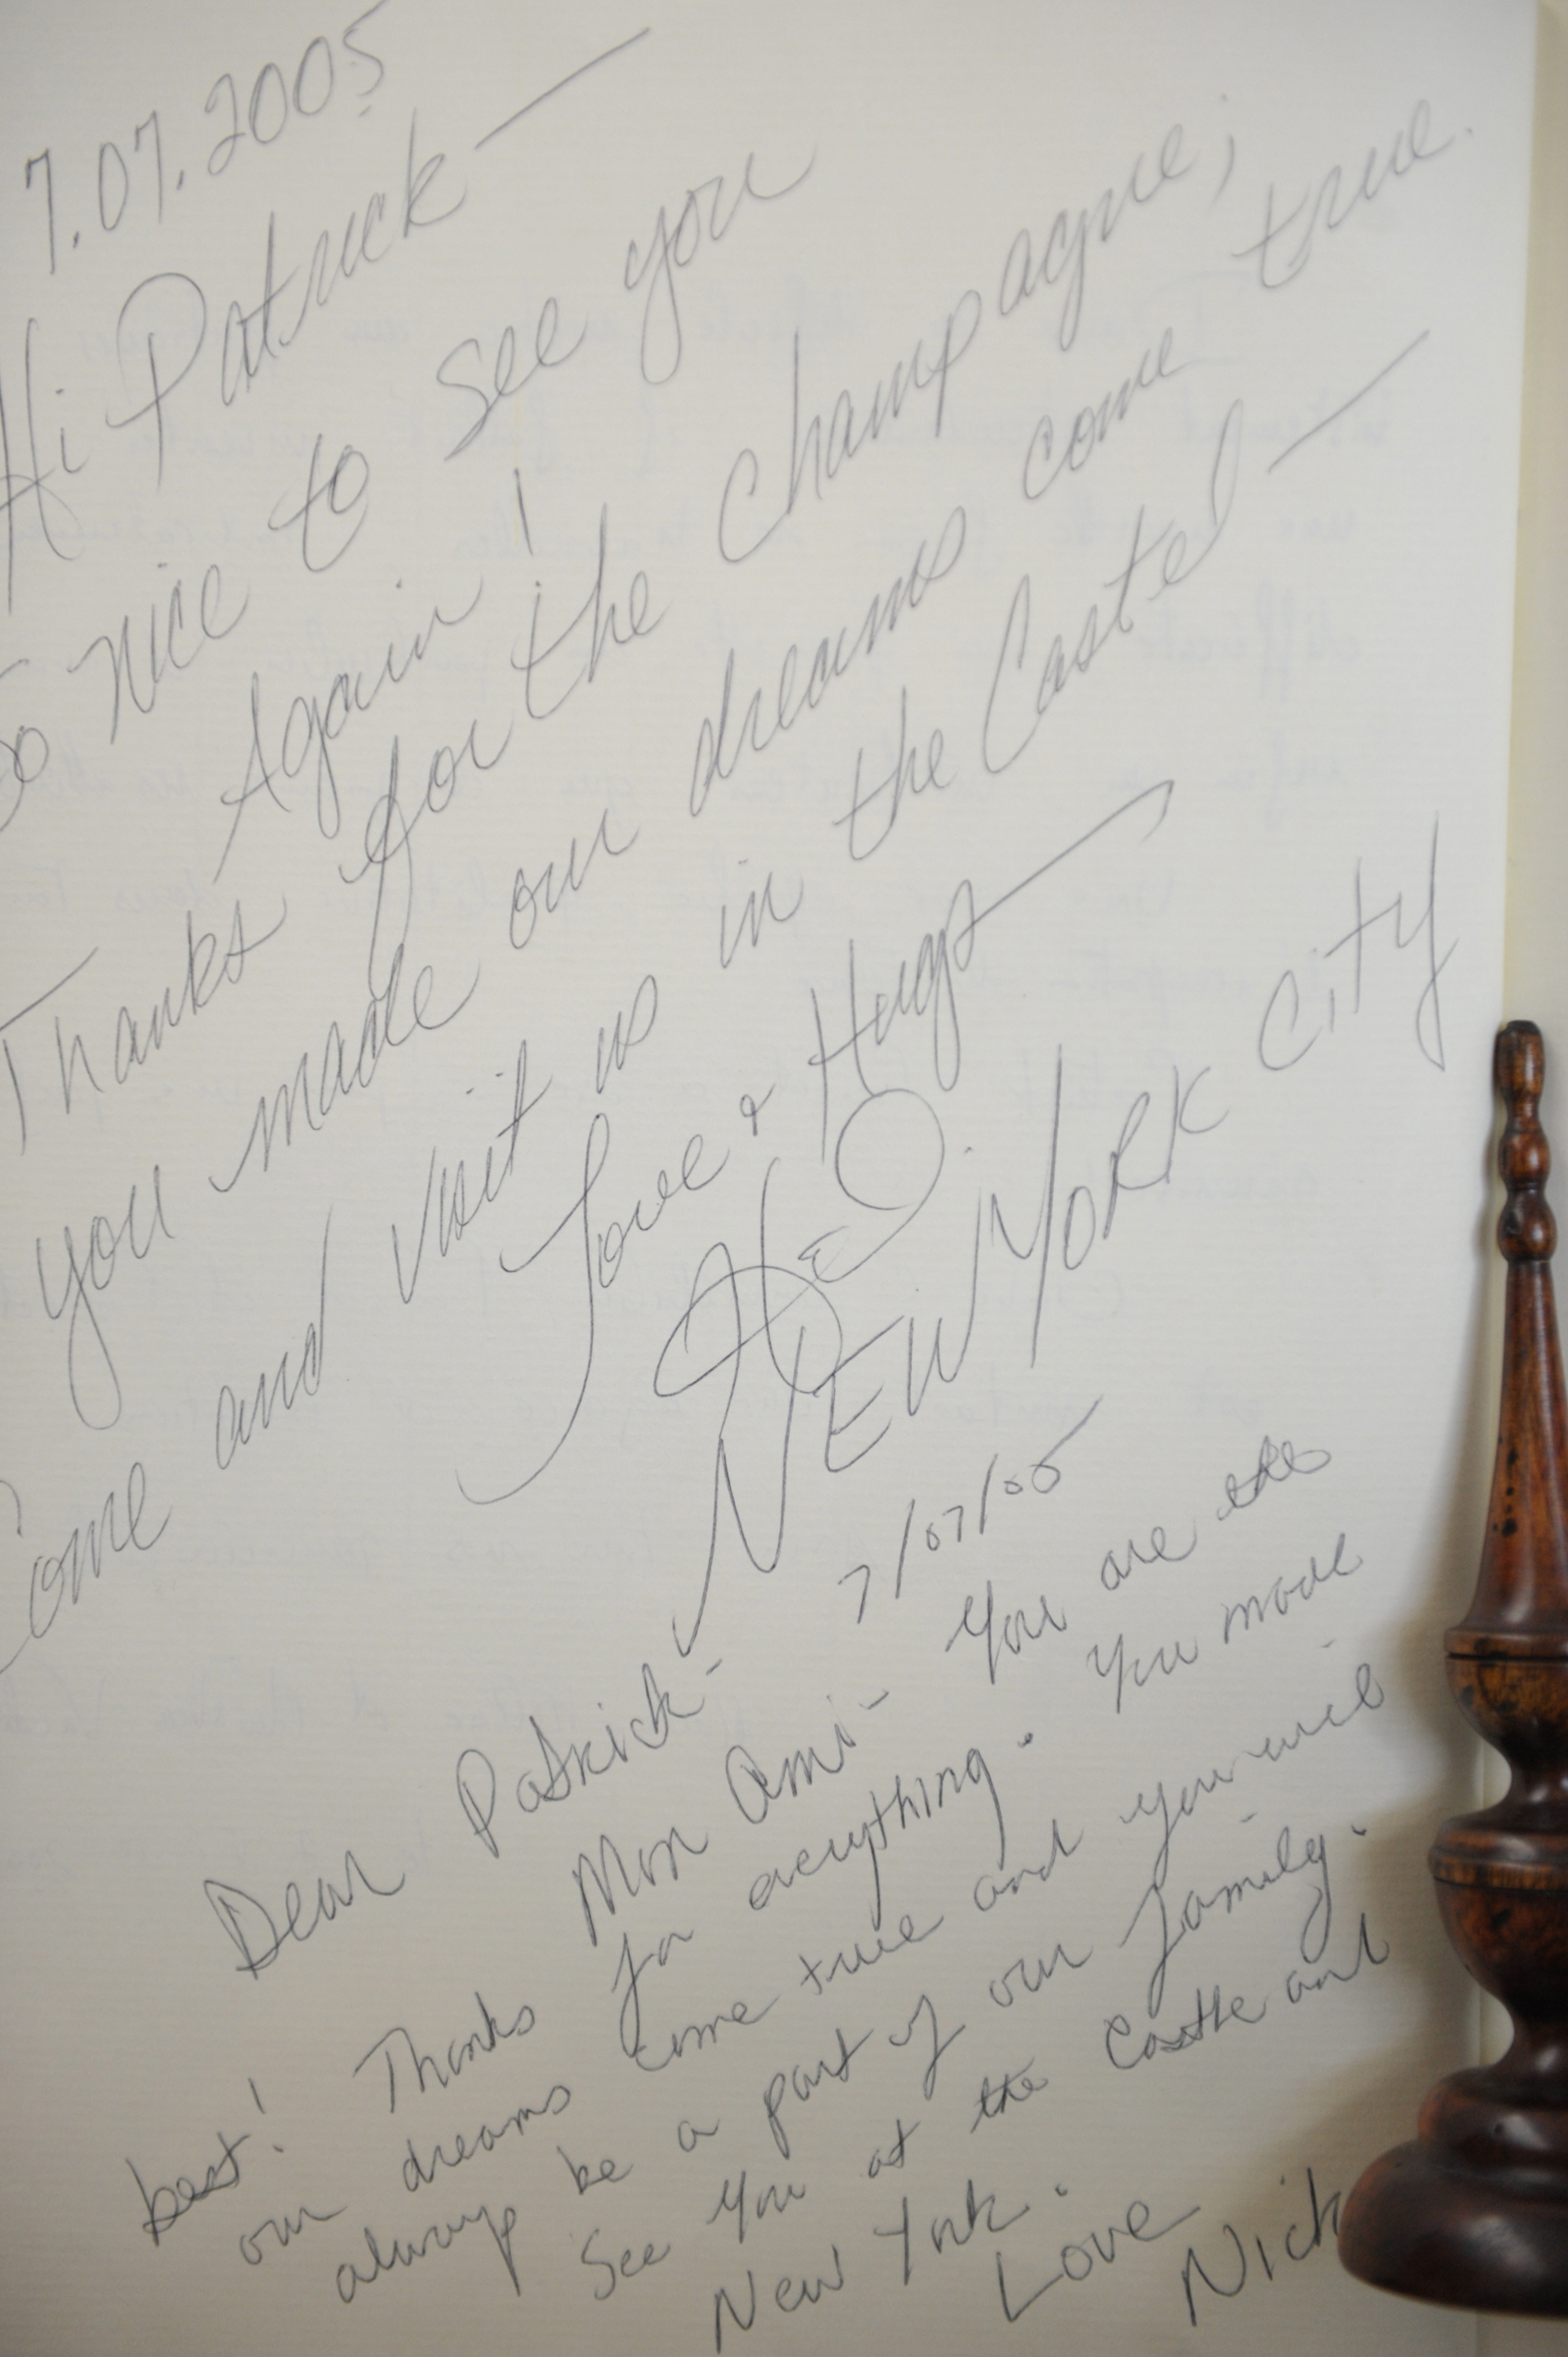 7.07.2005
Hi Patrick —
So nice to see you
Again!
Thanks for the champagne;
you made our dreams come true.
Come and visit us in the Castel —
Love & Hugs
NEW YORK CITY
7/07/05
Dear Patrick-
Mon Ami- You are the
best! Thanks for everything. You made
our dreams come true and you will
always be a part of our family.
See You at the Castle and
New York.
Love
Nick